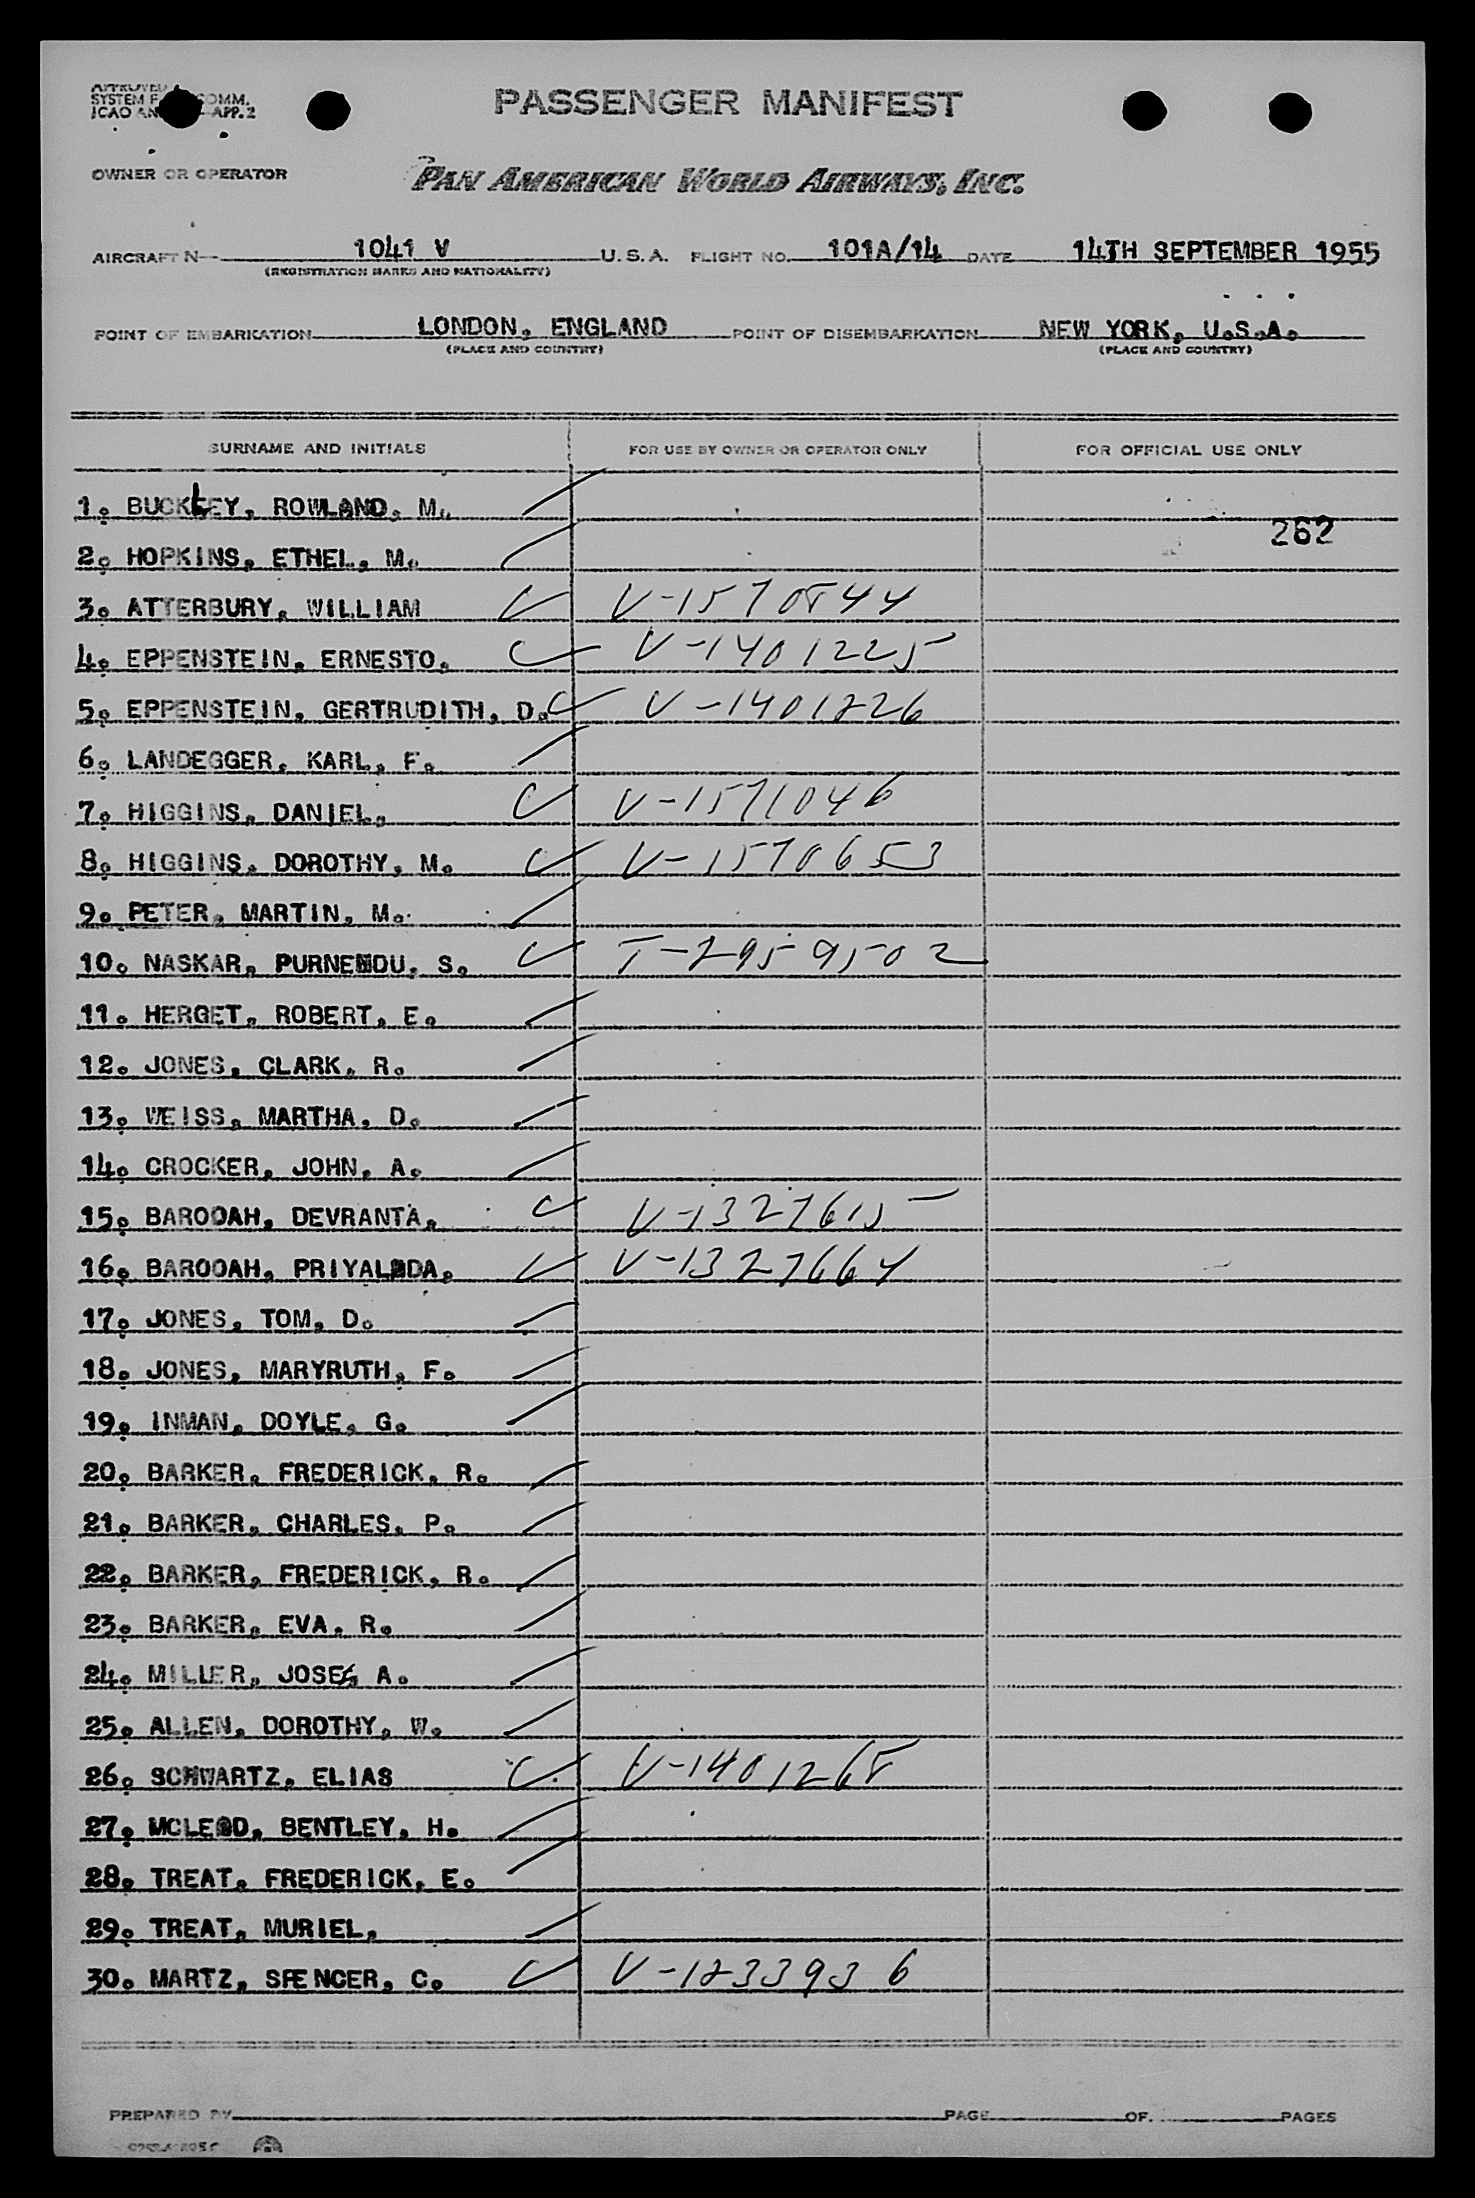 SYSTEM F COMM.
ICAO AN APP. 2
PASSENGER MANIFEST
OWNER OR OPERATOR PAN AMERICAN WORLD AIRWAYS, INC.
AIRCRAFT N— 1041 V U.S.A. FLIGHT NO. 101A/14 DATE 14TH SEPTEMBER 1955
(REGISTRATION MARKS AND NATIONALITY)
POINT OF EMBARKATION LONDON, ENGLAND POINT OF DISEMBARKATION NEW YORK, U.S.A.
(PLACE AND COUNTRY) (PLACE AND COUNTRY)
SURNAME AND INITIALS FOR USE BY OWNER OR OPERATOR ONLY FOR OFFICIAL USE ONLY
1. BUCKLEY, ROWLAND, M.
262
2. HOPKINS, ETHEL, M.
3. ATTERBURY, WILLIAM V-1570844
4. EPPENSTEIN, ERNESTO, V-1401225
5. EPPENSTEIN, GERTRUDITH, D. V-1401226
6. LANDEGGER, KARL, F.
7. HIGGINS, DANIEL, V-1571046
8. HIGGINS, DOROTHY, M. V-1570653
9. PETER, MARTIN, M.
10. NASKAR, PURNENDU, S. T-2959502
11. HERGET, ROBERT, E.
12. JONES, CLARK, R.
13. WEISS, MARTHA, D.
14. CROCKER, JOHN, A.
15. BAROOAH, DEVRANTA, V-1327615
16. BAROOAH, PRIYALDA, V-1327664
17. JONES, TOM, D.
18. JONES, MARYRUTH, F.
19. INMAN, DOYLE, G.
20. BARKER, FREDERICK, R.
21. BARKER, CHARLES, P.
22. BARKER, FREDERICK, R.
23. BARKER, EVA, R.
24. MILLER, JOSE, A.
25. ALLEN, DOROTHY, W.
26. SCHWARTZ, ELIAS V-1401268
27. MCLEOD, BENTLEY, H.
28. TREAT, FREDERICK, E.
29. TREAT, MURIEL,
30. MARTZ, SPENCER, C. V-1233936
PREPARED BY PAGE OF PAGES